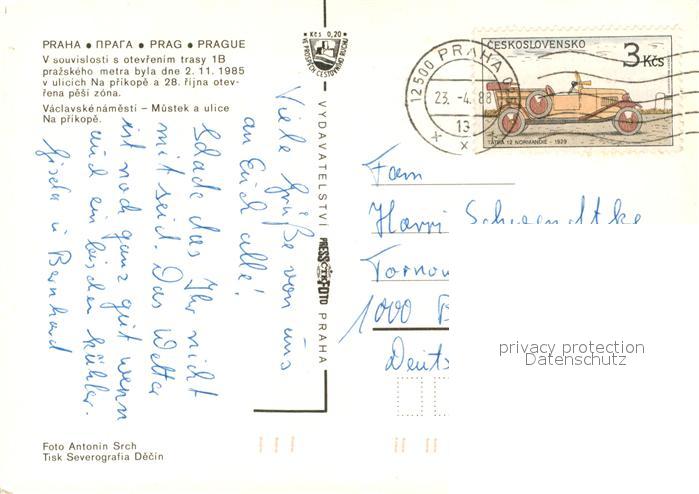 PRAHA ● ПРАГА ● PRAG ● PRAGUE
V souvislosti s otevřením trasy 1B
pražského metra byla dne 2. 11. 1985
v ulicích Na příkopě a 28. října otev-
řena pěší zóna.
Václavské náměstí – Můstek a ulice
Na příkopě.
Kčs 0,20
VE PROSPĚCH CESTOVNÍHO RUCHU
VYDAVATELSTVÍ PRESSFOTO PRAHA
ČTK
12500 PRAHA
23. -4. 88
13
x
ČESKOSLOVENSKO
3 Kčs
TATRA 12 NORMANDIE - 1929
Viele Grüße von uns
an Euch alle!
Schade das Ihr nicht
mit seid. Das Wetter
ist noch ganz gut wenn
auch ein bischen kühler.
Gisela u Bernhard
Fam
Harri Schwendtke
Tornow
1000 B
Deuts
privacy protection
Datenschutz
Foto Antonín Srch
Tisk Severografia Děčín